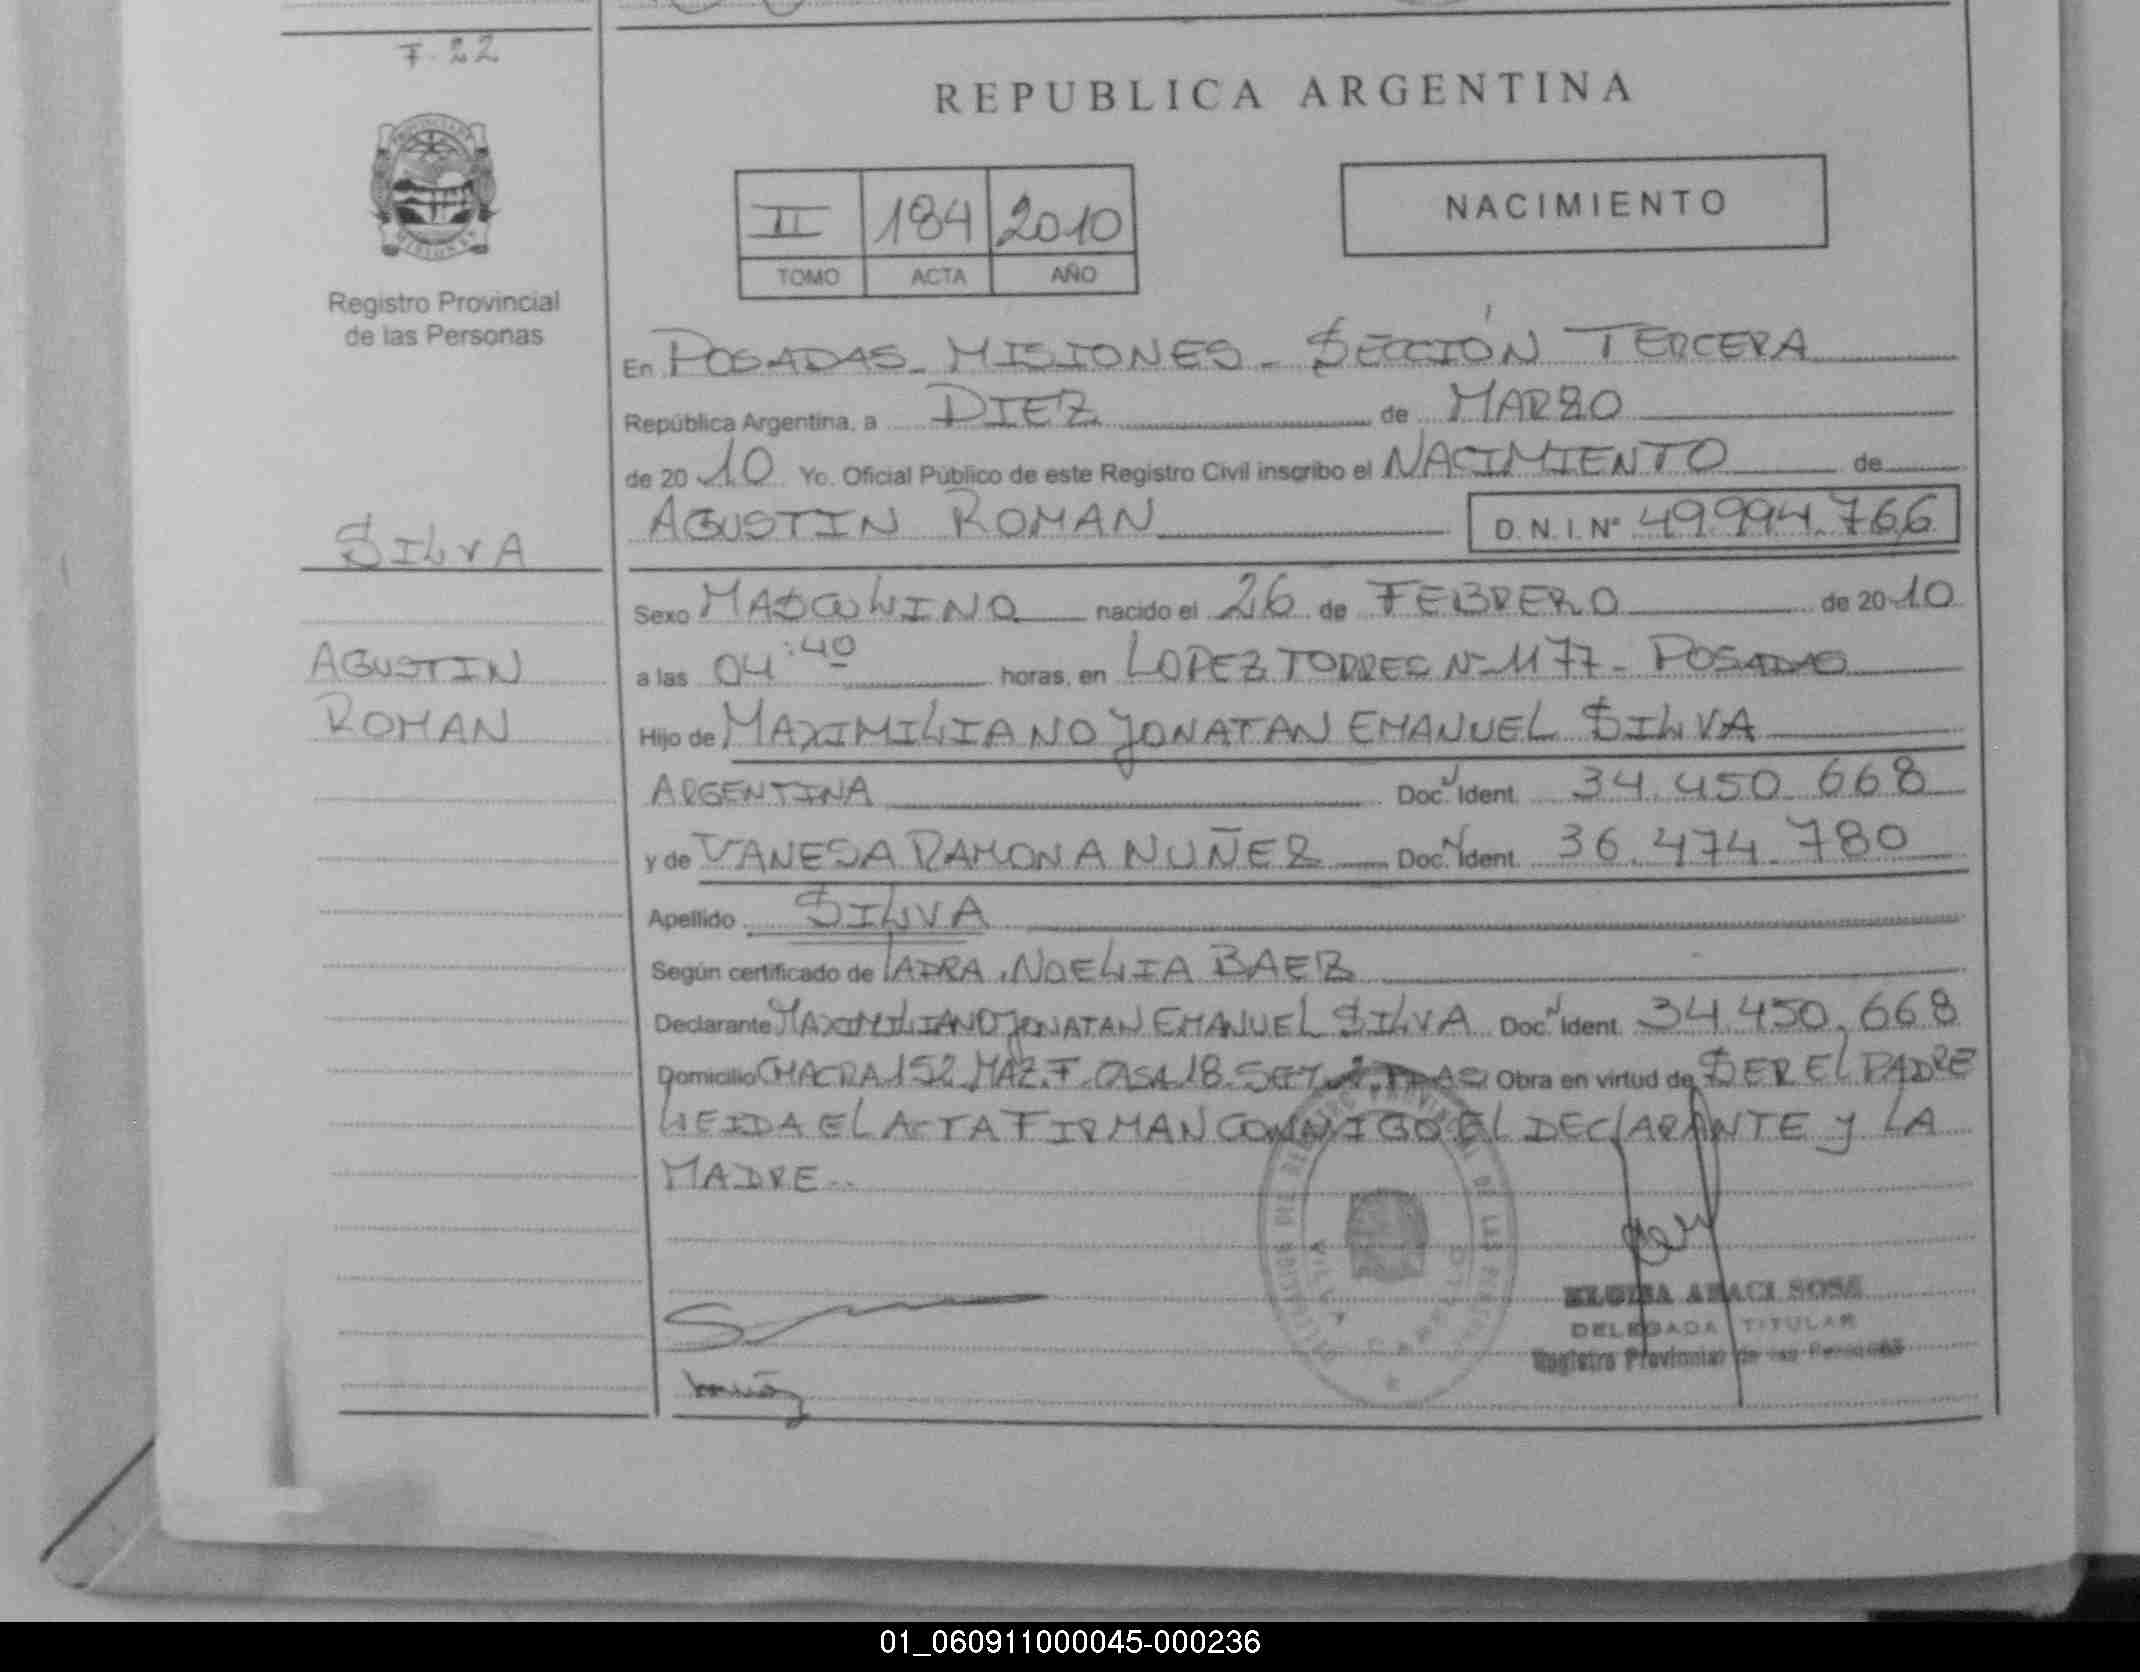 F. 22
REPUBLICA ARGENTINA
II 184 2010
TOMO ACTA AÑO
NACIMIENTO
Registro Provincial
de las Personas
En POSADAS - MISIONES - SECCIÓN TERCERA
República Argentina, a DIEZ de MARZO
de 20 10 Yo. Oficial Público de este Registro Civil inscribo el NACIMIENTO de
AGUSTIN ROMAN D.N.I. Nº 49.994.766
SILVA
AGUSTIN
ROMAN
Sexo MASCULINO nacido el 26 de FEBRERO de 20 10
a las 04:40 horas, en LOPEZ TORRES Nº 1177 - POSADAS
Hijo de MAXIMILIANO JONATAN EMANUEL SILVA
ARGENTINA Doc. Ident. 34.450.668
y de VANESA RAMONA NUÑEZ Doc. Ident. 36.474.780
Apellido SILVA
Según certificado de NOELIA BAEZ
Declarante MAXIMILIANO JONATAN EMANUEL SILVA Doc. Ident. 34.450.668
Domicilio CHACRA 152 MAZ. F. CASA 18. Obra en virtud de SER EL PADRE
LEIDA EL ACTA FIRMAN CONMIGO EL DECLARANTE y LA
MADRE..
DELEGADA TITULAR
Registro Provincial de las Personas
01_060911000045-000236